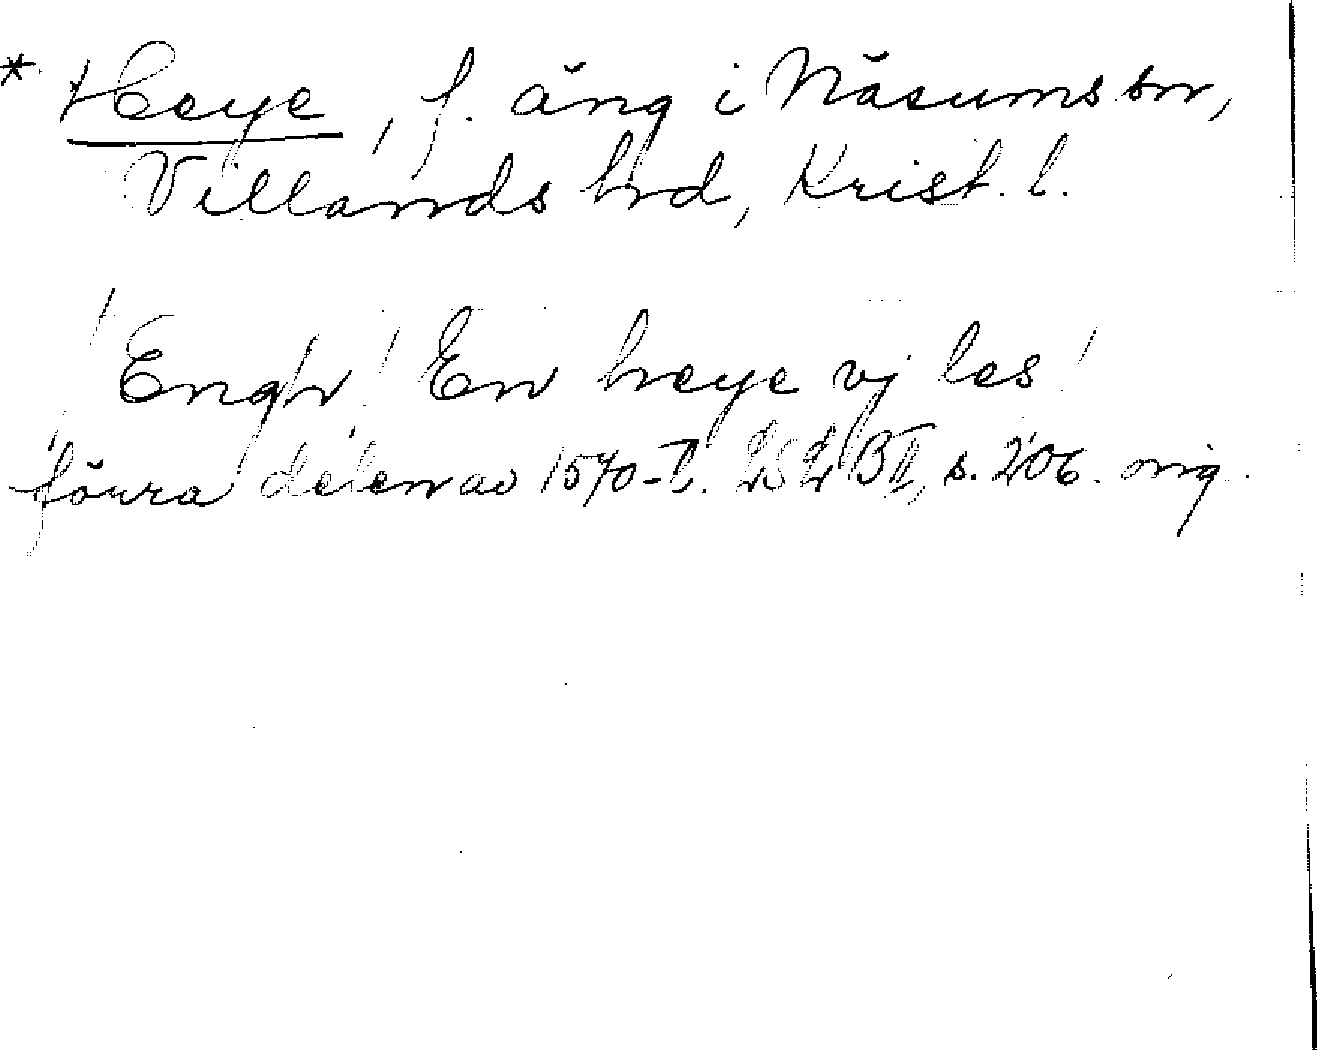 * Heye, f. äng i Näsums sn,
Villands hrd, Krist. l.
'Engh' En heye vj les'
förra delen av 1570-t. LSLB II, s. 206. orig.